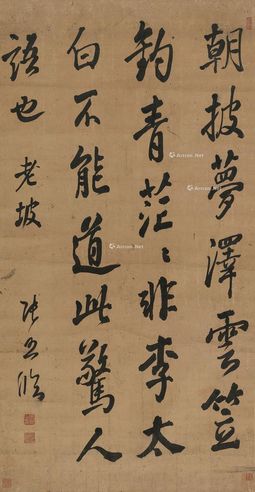 朝披夢澤雲笠
釣青茫〻非李太
白不能道此驚人
語也 老坡
張照臨
Artron.Net